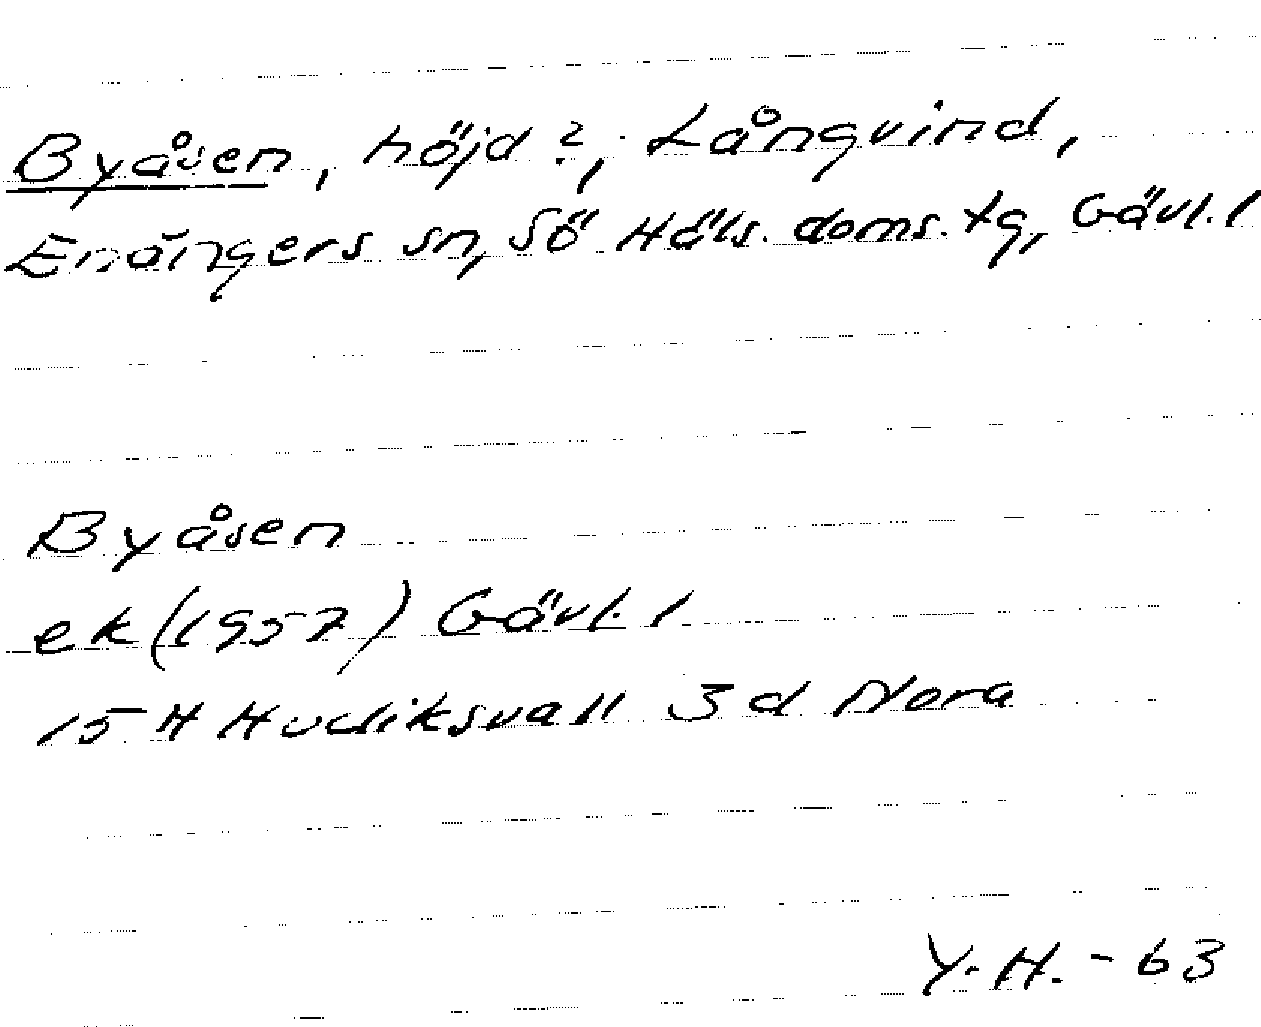 Byåsen, höjd?, Långvind,
Enångers sn, Sö Häls. doms. tg, Gävl. l
Byåsen
ek (1957) Gävl. l
15 H Hudiksvall 3 d Nora
Y. H. - 63